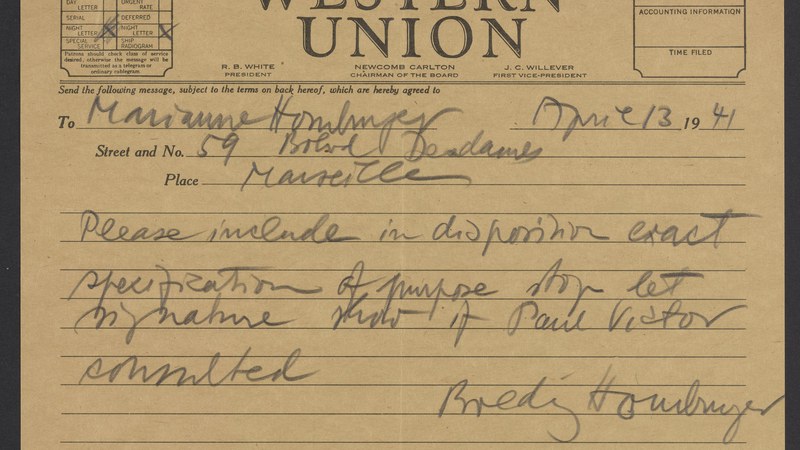 DAY LETTER
URGENT RATE
SERIAL
DEFERRED
NIGHT LETTER X
NIGHT LETTER X
SPECIAL SERVICE
SHIP RADIOGRAM
Patrons should check class of service
desired, otherwise the message will be
transmitted as a telegram or
ordinary cablegram.
WESTERN
UNION
ACCOUNTING INFORMATION
TIME FILED
R. B. WHITE
PRESIDENT
NEWCOMB CARLTON
CHAIRMAN OF THE BOARD
J. C. WILLEVER
FIRST VICE-PRESIDENT
Send the following message, subject to the terms on back hereof, which are hereby agreed to
To Marianne Homburger April 13 1941
Street and No. 59 Desdames
Place Marseille
Please include in disposition exact
specification of purpose stop let
signature show if Paul Victor
consulted
Homburger